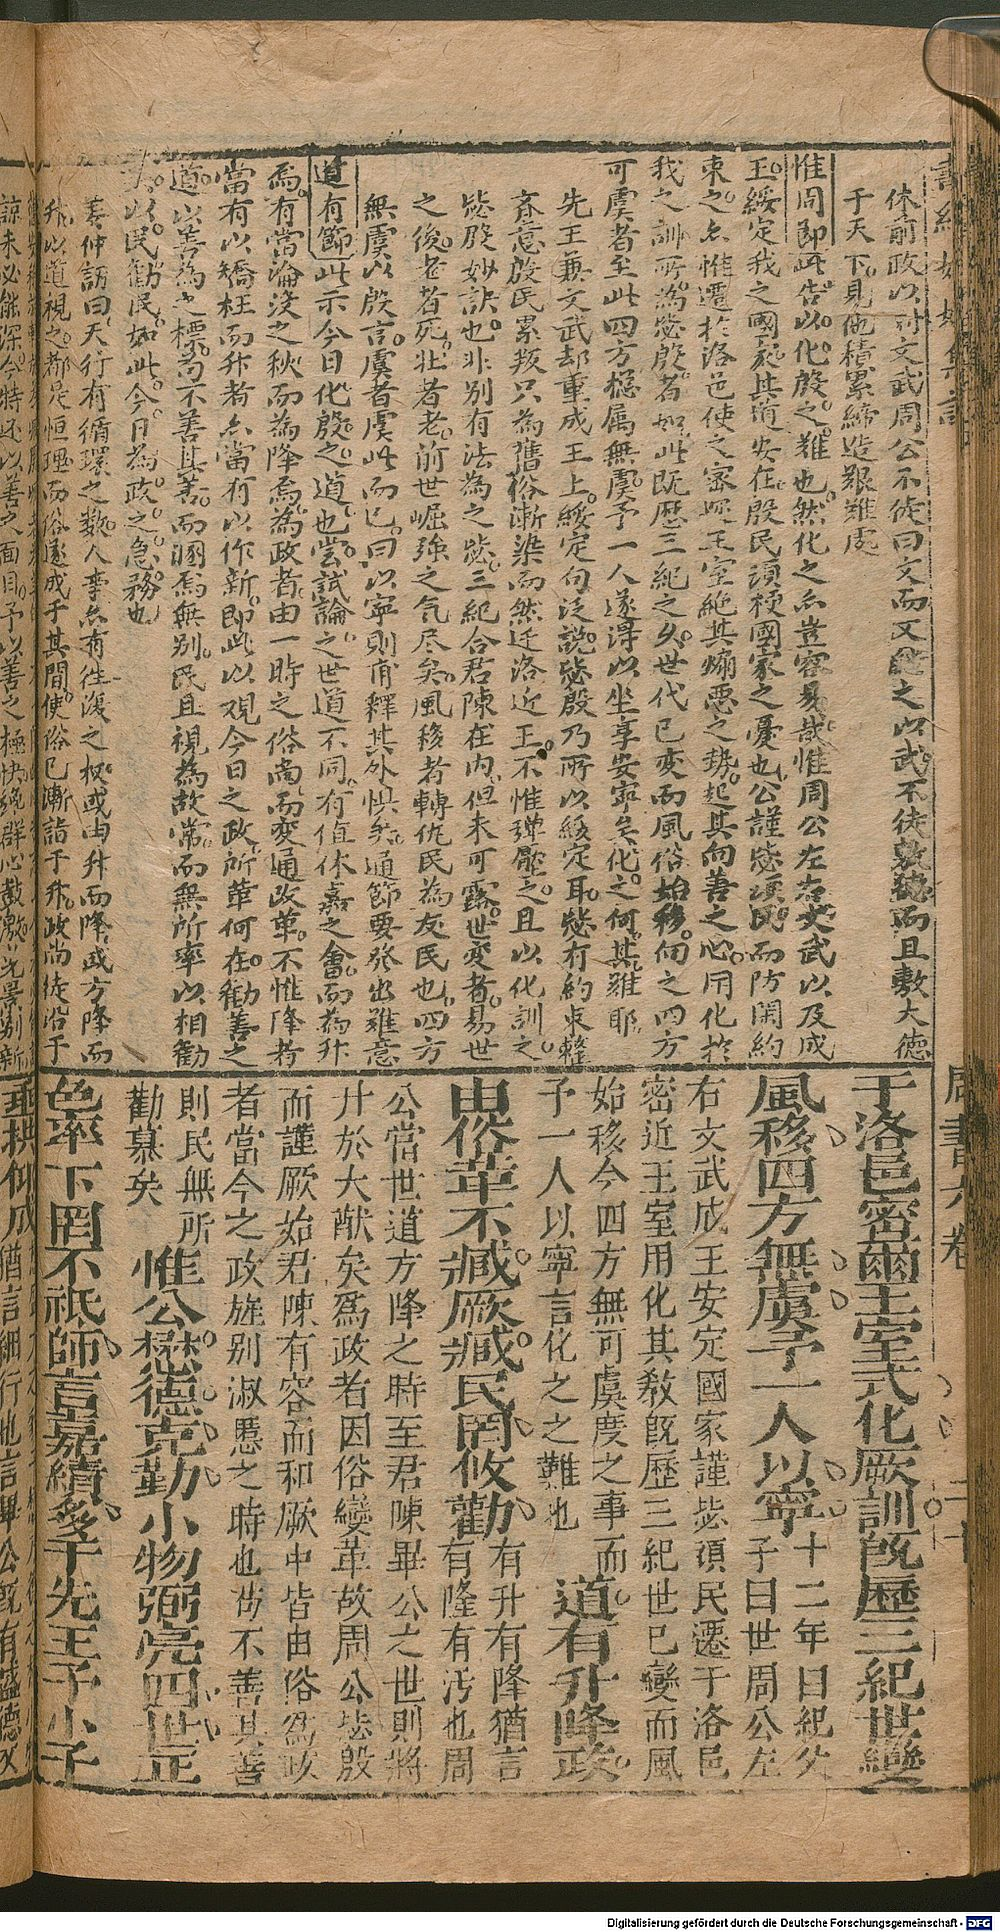 休前政以對文武周公不徒曰文而又　之以武不徒敦德而且敷大德
于天下見他積累締造艱難處
惟周節此告以化殷之難也然化之亦豈容易哉惟周公左右文武以及成
王綏定我之國家其道安在殷民頑梗國家之憂也公謹毖頑民而防閑約
束之亦惟遷於洛邑使之密邇王室絶其煽惡之勢起其向善之心用化於
我之訓所為毖殷者如此既歷三紀之久世代已變而風俗始移向之四方
可虞者至此四方穩属無虞予一人遂得以坐享安寧矣化之何其難耶
先王兼文武却重成王上綏定句泛説毖殷乃所以綏定耳毖有約束整
齊意殷民累叛只為舊俗漸染而然迁洛近王不惟弹壓之且以化訓之
毖殷妙訣也非别有法為之毖三紀合君陳在内但未可露世変者易世
之後老者死壯者老前世崛強之气尽矣風移者轉仇民為友民也四方
無虞以殷言虞者虞此而已曰以寧則甫釋其外惧矣通節要發出難意
道有節此示今日化殷之道也嘗試論之世道不同有值休嘉之會而為升
焉有當淪没之秋而為降焉為政者由一時之俗尚而変通改革不惟降者
當有以矯枉而升者亦當有以作新即此以观今日之政所革何在勸善之
道以善為之標而不善其善而溷焉無别民且視為故常而無所率以相勸
矣以民勸民如此今日為政之急務也
姜仲訒曰天行有循環之数人事亦有往復之权或由升而降或方降而
升以道視之都是恒理而俗遂成于其間使俗已漸詣于升政尚徒沿于
于洛邑密爾王室式化厥訓既歷三紀世變
風移四方無虞予一人以寧十二年曰紀父子曰世周公左
右文武成王安定國家謹毖頑民遷于洛邑
密近王室用化其教既歷三紀世已變而風
始移今四方無可虞度之事而
予一人以寧言化之之難也道有升降政
由俗革不臧厥臧民罔攸勸有升有降猶言有隆有污也周
公當世道方降之時至君陳畢公之世則將
升於大猷矣為政者因俗變革故周公毖殷
而謹厥始君陳有容而和厥中皆由俗為政
者當今之政旌别淑慝之時也苟不善其善
則民無所
勸慕矣惟公懋德克勤小物弼亮四世正
色率下罔不祗師言嘉績多于先王予小子
Digitalisierung gefördert durch die Deutsche Forschungsgemeinschaft - DFG